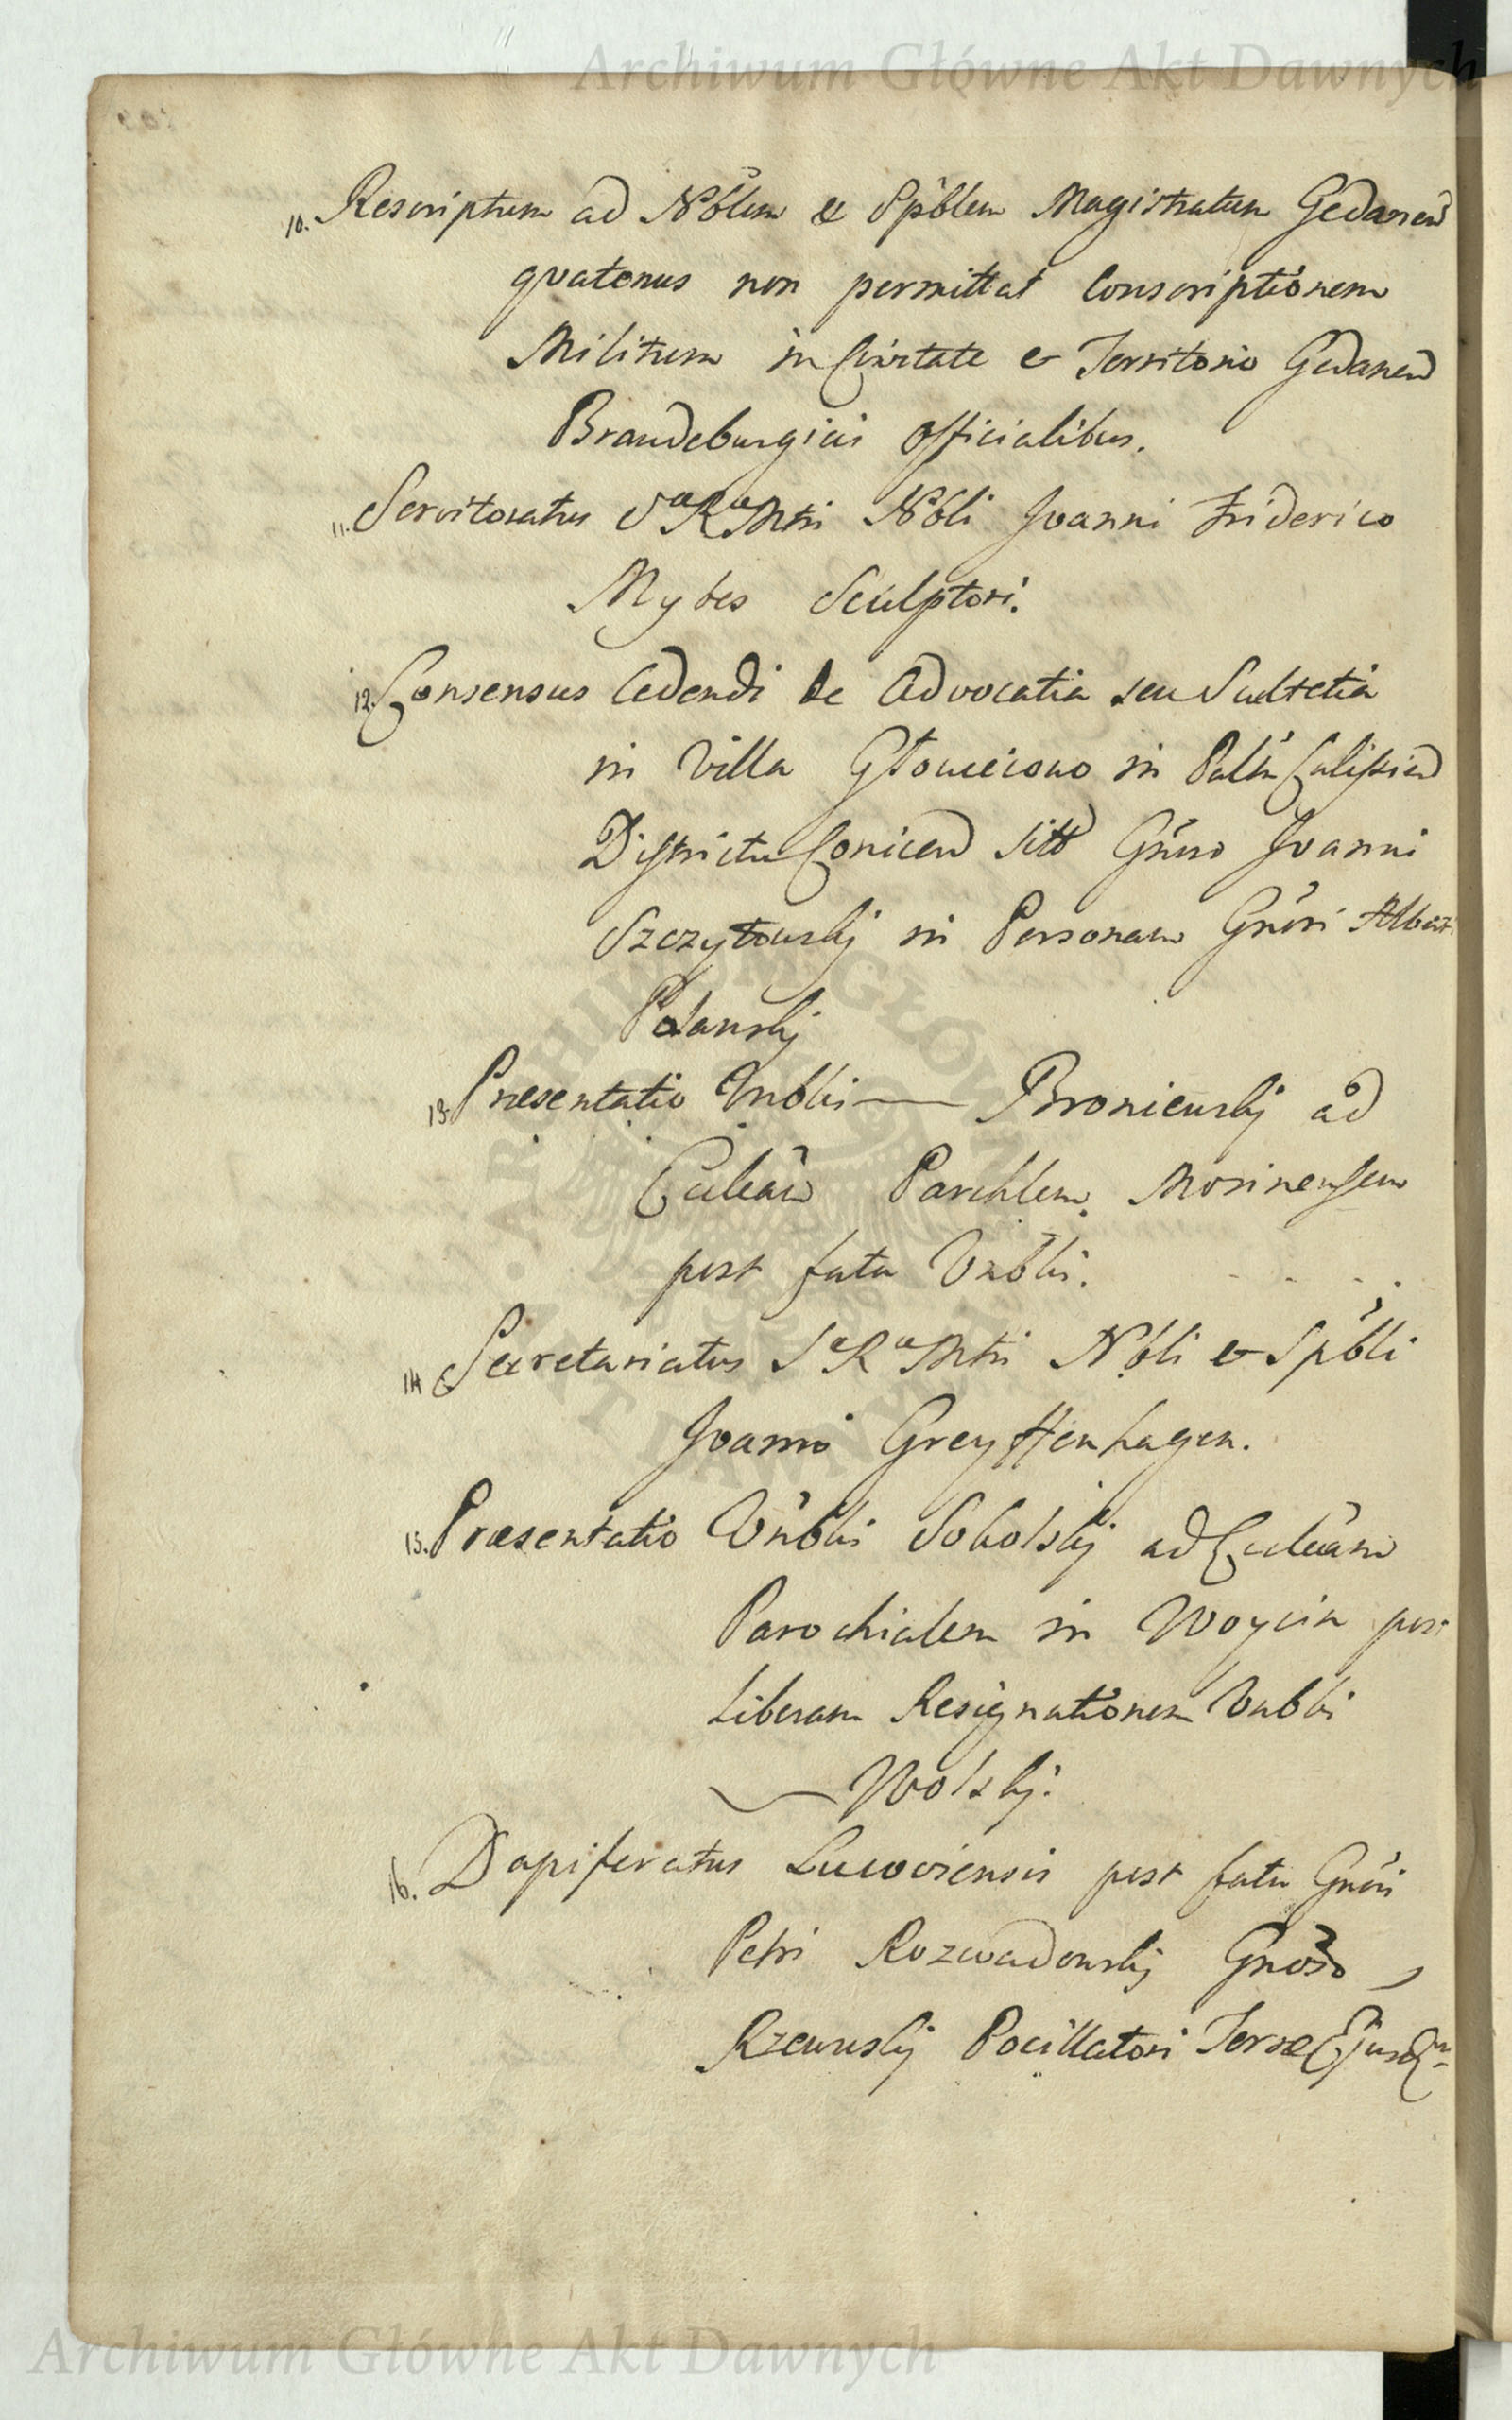 Archiwum Główne Akt Dawnych
10. Rescriptum ad Nöblem & Spöblem Magistratum Gedanen
quatenus non permittat Conscriptionem
Militum in Civitate & Territorio Gedanen
Brandeburgicis Officialibus.
11. Servitoratus Sæ Ræ Mtti Nobli Joanni Friderico
Mybes Sculptori.
12. Consensus Cedendi de Advocatia seu Scultetia
in Villa in Paltu Calissien
Districtu Conicen sitt Gnrso Joanni
Szczytowskj in Personam Gnrsi Alber
Polanskj
13. Præsentatio Vnblis — Bronieuskj ad
Eccleam Parchlem Morinensem
post fata Vnblis.
14 Secretariatus Sæ Ræ Mtti Nobli & Spöbli
Joanni Greyffenhagen.
15. Præsentatio Vnblis Sokolskj ad Eccleam
Parochialem in Woycin post
Liberam Resignationem Vnblis
— Wolskj.
16. Dapiferatus Leuoviensis post fata Gnrsi
Petri Rozwadowskj Gnoso
Rzewuskj Pocillatori Terræ Ejusdm
Archiwum Główne Akt Dawnych